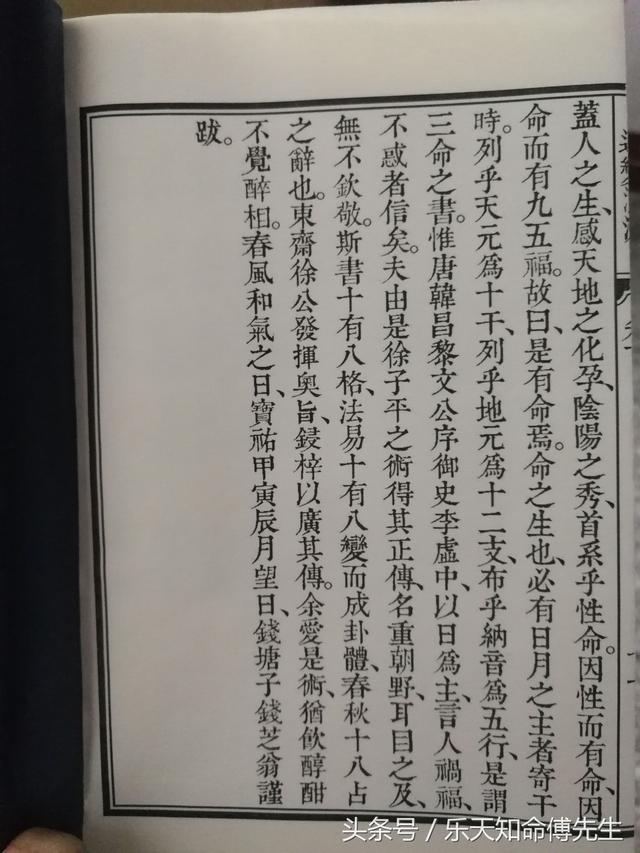 蓋人之生、感天地之化孕、陰陽之秀、首系乎性命。因性而有命、因
命而有九五福。故曰、是有命焉。命之生也、必有日月之主者寄干
時。列乎天元爲十干、列乎地元爲十二支、布乎納音爲五行、是謂
三命之書。惟唐韓昌黎文公序御史李虛中、以日爲主、言人禍福、
不惑者信矣。夫由是徐子平之術得其正傳、名重朝野、耳目之及、
無不欽敬。斯書十有八格、法易十有八變而成卦體、春秋十八占
之辭也。東齋徐公發揮奧旨、鋟梓以廣其傳。余愛是術、猶飲醇酣
不覺醉相。春風和氣之日、寶祐甲寅辰月望日、錢塘子錢芝翁謹
跋。
头条号 / 乐天知命傅先生